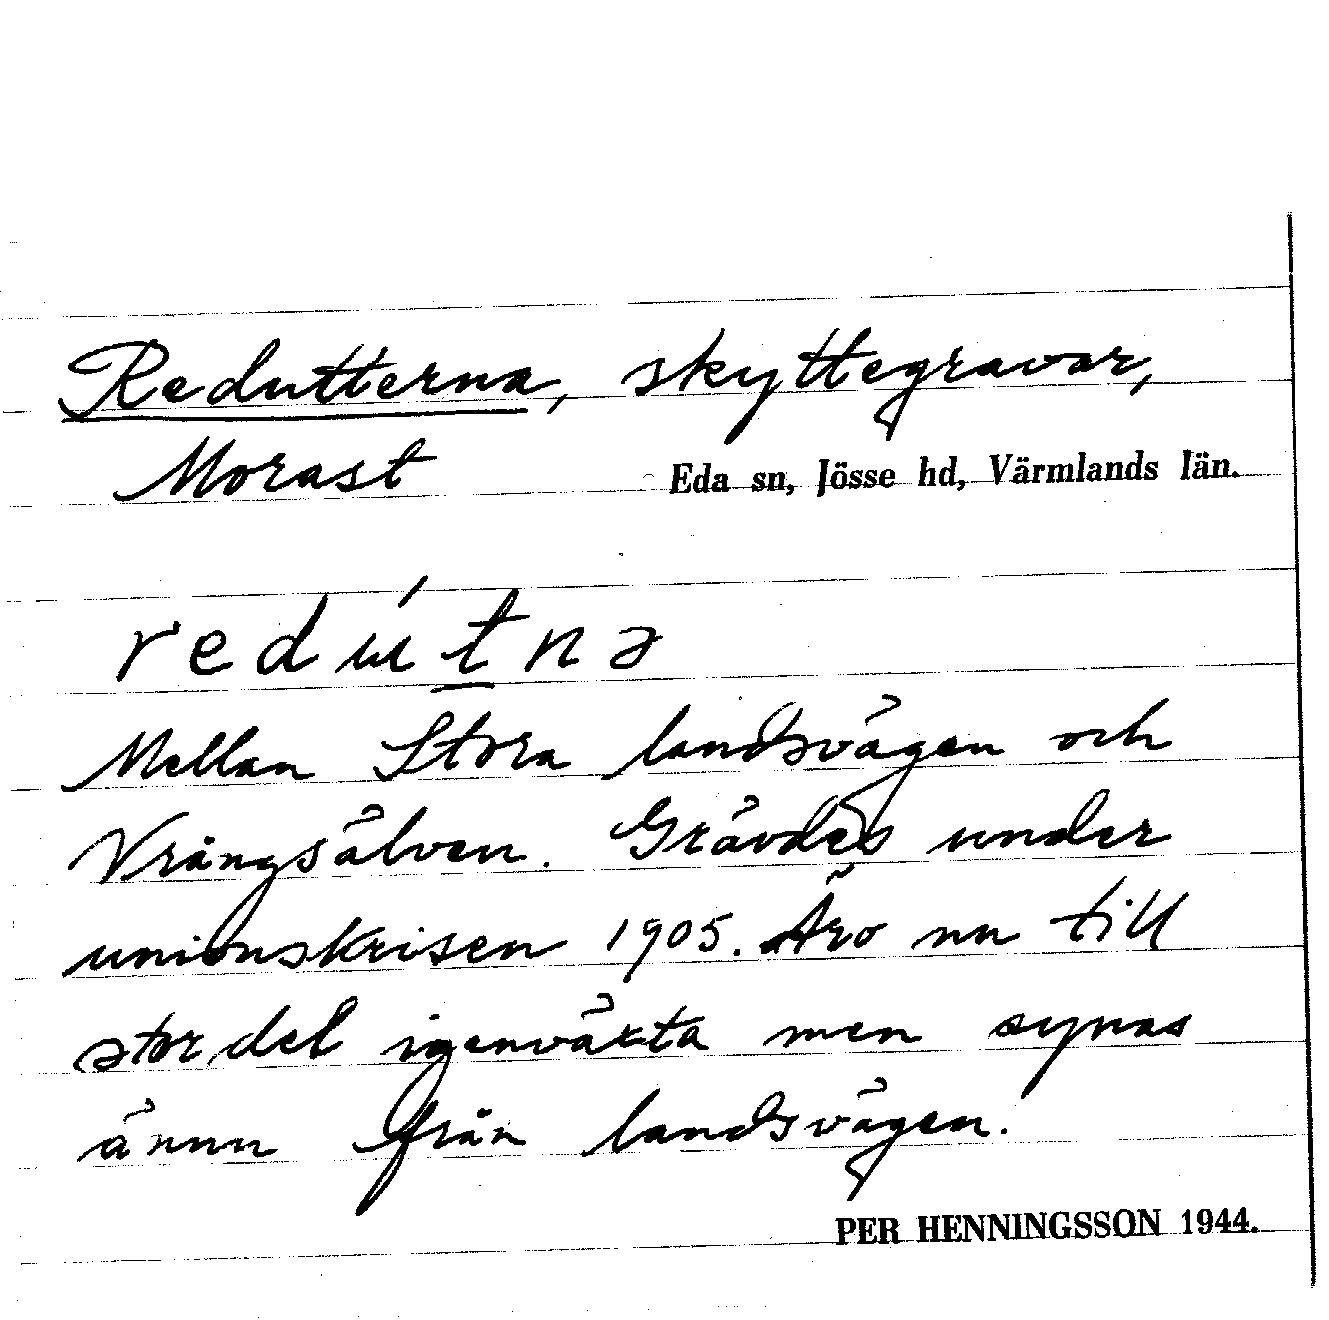 Redutterna, skyttegravar,
Morast Eda sn, Jösse hd, Värmlands län.
redútnə
Mellan Stora landsvägen och
Vrångsälven. Grävdes under
unionskrisen 1905. Äro nu till
stor del igenväxta men synas
ännu från landsvägen.
PER HENNINGSSON 1944.